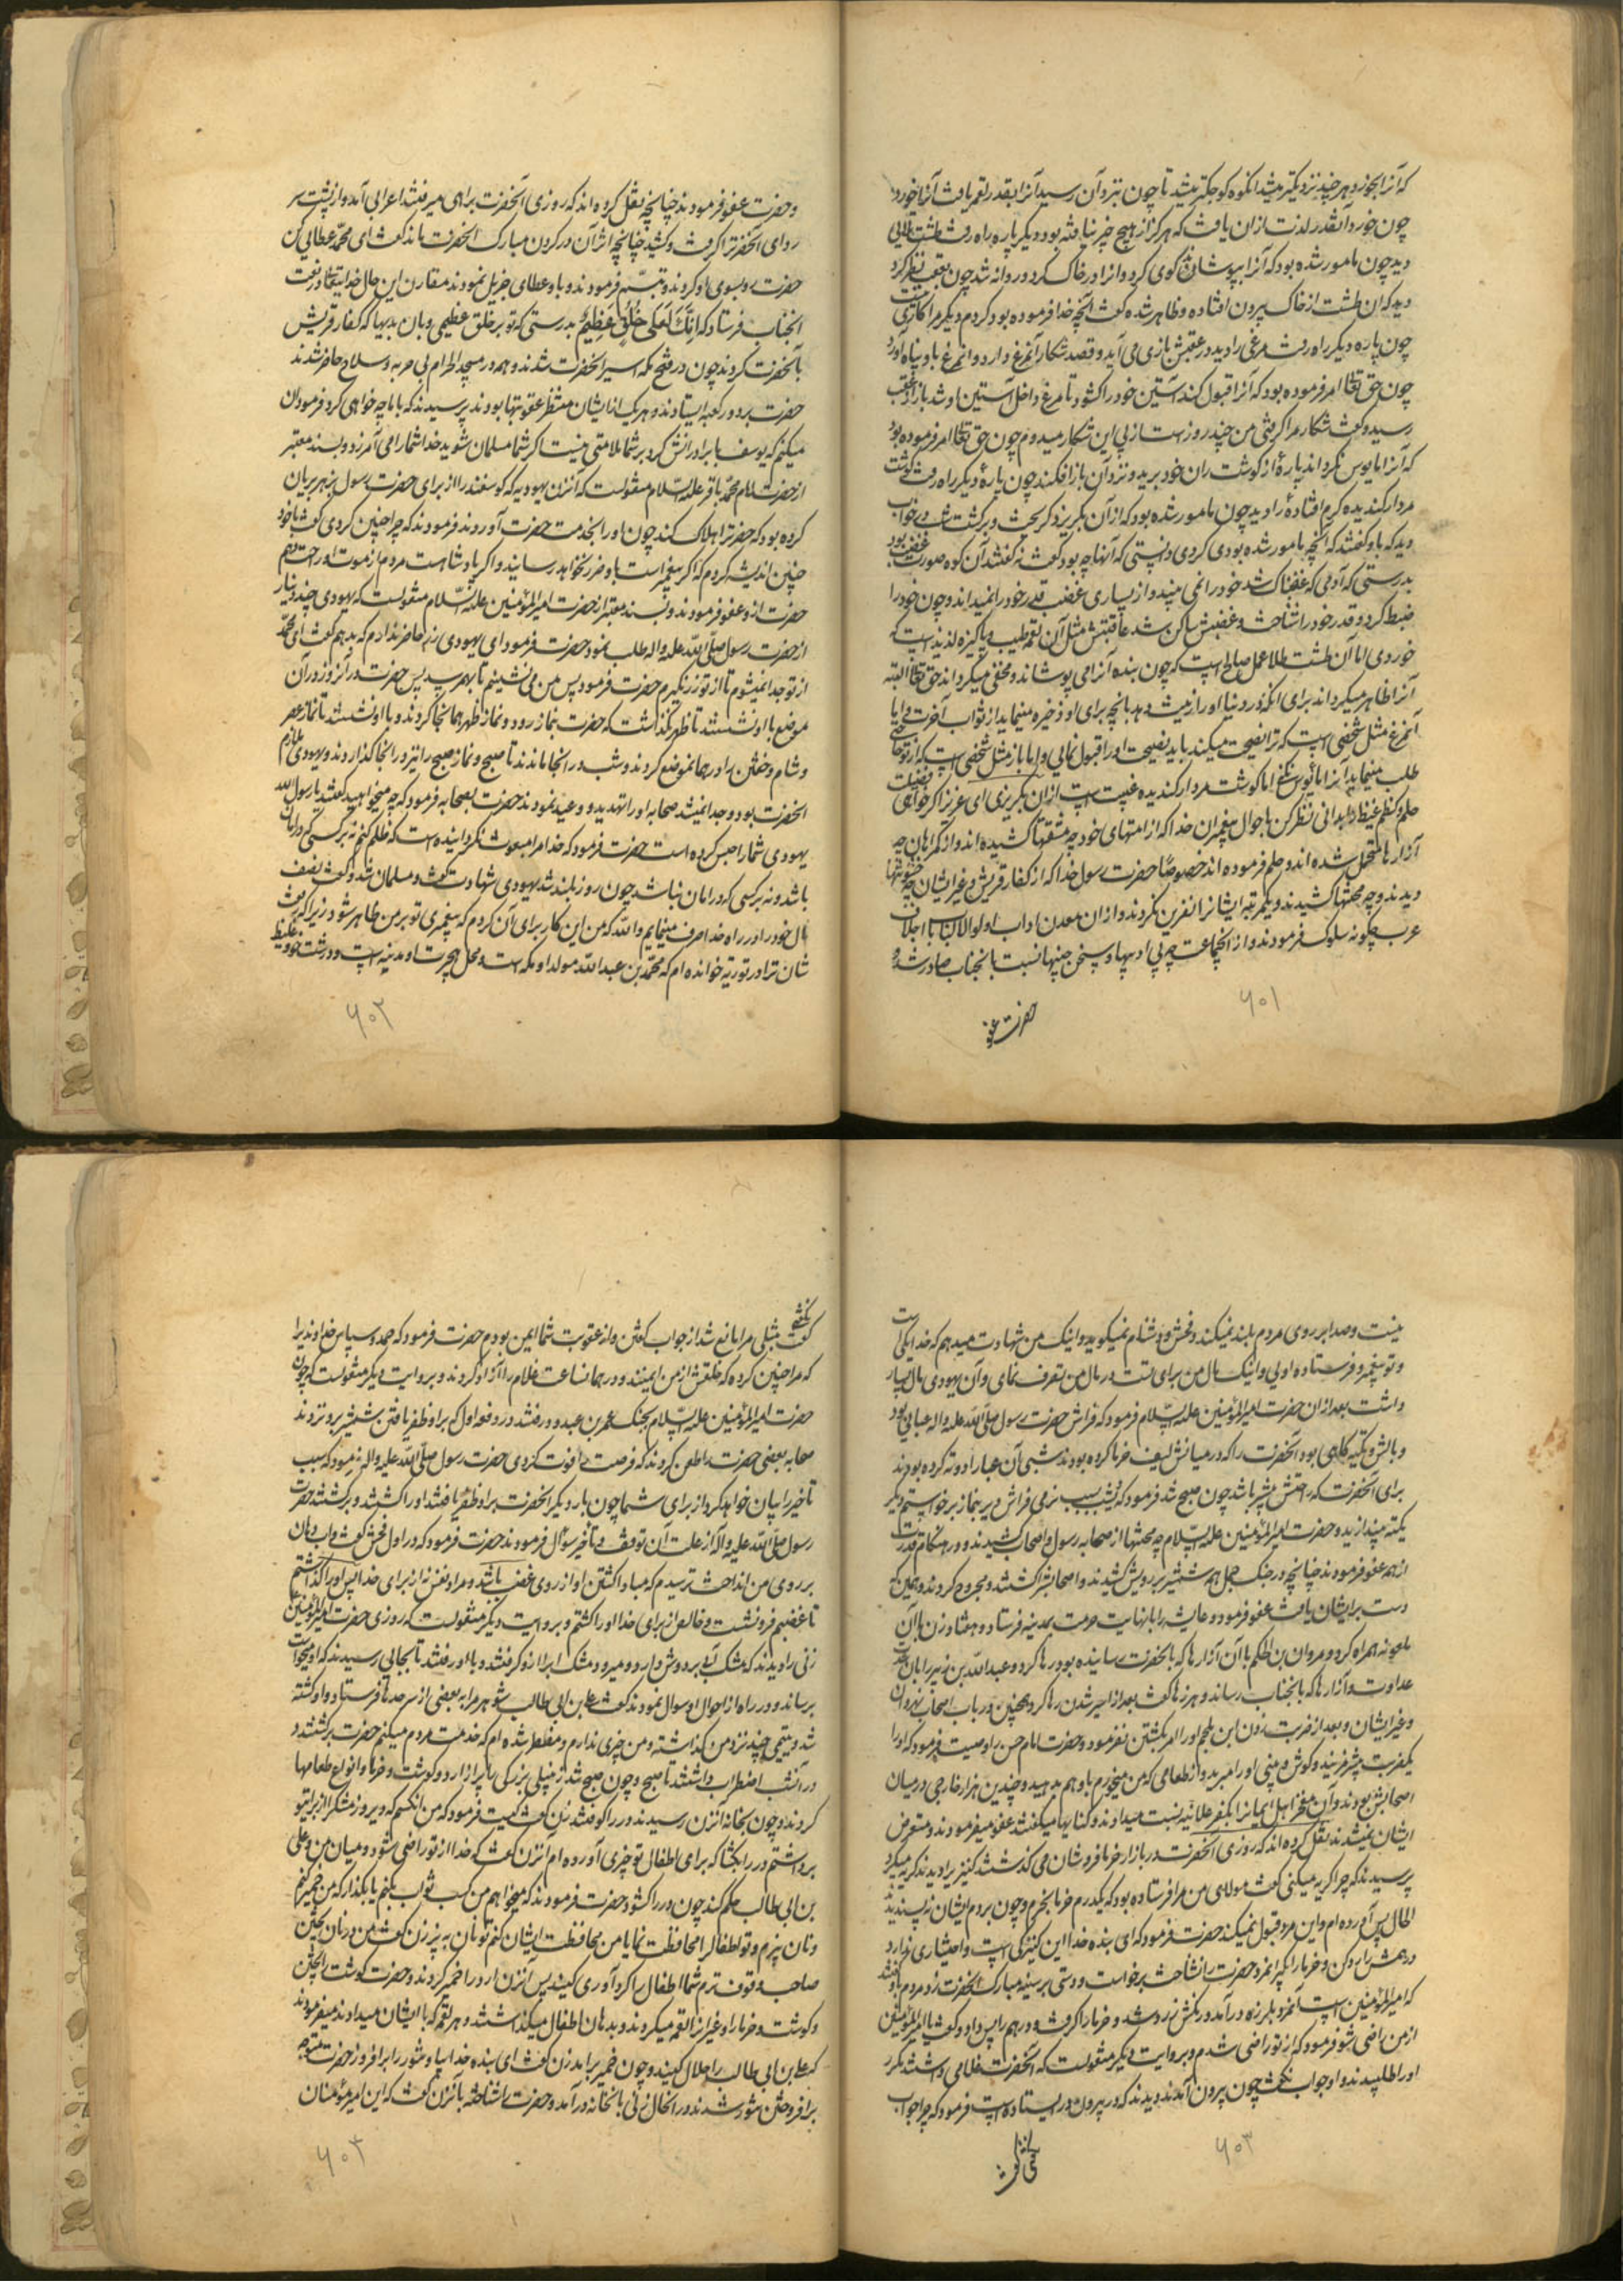 که آنرا بخورد هرچند نزدیکتر میشد آنکوه کوچکتر میشد تا چون نزد آن رسید آنرا بقدر لقمه یافت آنرا خورد
چون خورد آنقدر لذت از ان یافت که هرگز از هیچ چیز نیافته بود و دیگر پاره راه رفت طشت طلایی
دید چون مامور شده بود که آنرا بپوشان گوی کرد و انرا در خاک کرد و روانه شد چون بعقب نظر کرد
دید که ان طشت از خاک بیرون افتاده و ظاهر شده گفت آنچه خدا فرموده بود کردم دیگر مرا کاری نیست
چون پاره دیگر راه رفت مرغی را دید در عقبش بازی می آید و قصد شکار آنمرغ دارد و انمرغ باو پناه آورد
چون حق تعالی امر فرموده بود که آنرا قبول کند آستین خود را کشود تا مرغ داخل آستین او شد باز از عقب
رسید و گفت شکار مرا گرفتی من چند روز است از پی این شکار میدوم چون حق تعالی امر فرموده بود
که آنرا مایوس نگرداند پارهٔ از گوشت ران خود برید و نزد آن باز افکند چون پارهٔ دیگر راه رفت گوشت
مردار گندیده کرم افتادهٔ را دید چون مامور شده بود که از آن بگریزد گریخت و برگشت شب در خواب
دید که باو گفتند که آنچه مامور شده بودی کردی دانستی که آنها چه بود گفت نه گفتند آن کوه صورت غضب بود
بدرستی که آدمی که غضبناک شد خود را نمی بیند و از بسیاری غضب قدر خود را نمیداند و چون خود را
ضبط کرد و قدر خود را شناخت و غضبش ساکن شد عاقبتش مثل آن لقمه طیب و پاکیزه لذیذ است که
خوردی اما آن طشت طلا عمل صالح است که چون بنده آنرا می پوشاند و مخفی میگرداند حق تعالی البته
آنرا ظاهر میگرداند برای انکه در دنیا او را زینت دهد بانچه برای او ذخیره مینماید از ثواب آخرت و اما
آنمرغ مثل شخصی است که ترا نصیحت میکند باید نصیحت او را قبول نمایی و اما باز مثل شخصی است که از تو حاجتی
طلب مینماید آنرا مایوس مکن اما گوشت مردار گندیده غیبت است از ان بگریزی ای عزیز اگر خواهی فضیلت
حلم و کظم غیظ را بدانی نظر کن باحوال پیغمبران خدا که از امتهای خود چه مشقتها کشیده اند و از گمراهان چه
آزارها متحمل شده اند و حلم فرموده اند خصوصا حضرت رسول خدا که از کفار قریش و غیر ایشان چه خشونتها
دیدند و چه محنتها کشیدند و یکمرتبه ایشانرا نفرین نکردند و از ان معدن اداب اولوالالباب با اجلاف
عرب چگونه سلوک فرمودند و از آنجماعت چه بی ادبیها و سخن چینیها نسبت بانجناب صادر شد و
حضرت عفو
۶۰۱
وحضرت عفو فرمودند چنانچه نقل کرده اند که روزی آنحضرت براهی میرفتند اعرابی آمد و از پشت سر
ردای آنحضرترا گرفت و کشید چنانچه اثر آن در گردن مبارک آنحضرت ماند گفت ای محمد عطایی کن
حضرت رو بسوی او کردند و تبسم فرمودند و باو عطای جزیل نمودند مقارن این حال خدا اینها در نعت
انجناب فرستاد که اِنَّکَ لَعَلی خُلُقٍ عَظیمٍ بدرستی که تو بر خلق عظیمی و بان بدیها که کفار قریش
بآنحضرت کردند چون در فتح مکه اسیر انحضرت شدند و همه در مسجد الحرام بی حربه و سلاح حاضر شدند
حضرت بر در کعبه ایستادند و هر یک از ایشان منتظر عقوبتها بودند پرسیدند که با ما چه خواهی کرد فرمود ان
میکنم که یوسف با برادرانش کرد بر شما ملامتی نیست اگر شما مسلمان شوید خدا شما را می آمرزد و بسند معتبر
از حضرت امام محمد باقر علیه السلام منقولست که آنزن یهودیه که گوسفند را از برای حضرت رسول بزهر بریان
کرده بود که حضرترا هلاک کند چون او را بخدمت حضرت آوردند فرمودند که چرا چنین کردی گفت با خود
چنین اندیشه کردم که اگر پیغمبر است باو ضرر نخواهد رسانید و اگر پادشاه است مردم از موت او راحت دهم
حضرت از و عفو فرمودند و بسند معتبر از حضرت امیرالمؤمنین علیه السلام منقولست که یهودی چند دینار
از حضرت رسول صلی الله علیه واله طلب نمود حضرت فرمود ای یهودی زر حاضر ندارم که بدهم گفت ای محمد
از تو جدا نمیشوم تا از تو زر نگیرم حضرت فرمود پس من می نشینم تا بهم رسد پس حضرت در انروز در آن
موضع با او نشستند تا ظهر گذشت که حضرت نماز رود و نماز ظهر همانجا کردند و با او نشستند تا نماز عصر
و شام و خفتن را در همانموضع کردند و شب در آنجا ماندند تا صبح و نماز صبح را نیز در انجا گذاردند و یهودی ملازم
انحضرت بود و جدا نمیشد صحابه او را تهدید و وعید نمودند حضرت بصحابه فرمود که چه میخواهید گفتند یا رسول الله
یهودی شما را حبس کرده است حضرت فرمود که خدا مرا مبعوث نگردانیده است که ظلم کنم نه بر کسی که در امان
باشد و نه بر کسی که در امان نباشد چون روز بلند شد یهودی شهادت گفت و مسلمان شد و گفت نصف
مال خود را در راه خدا صرف مینمایم والله که من این کار برای آن کردم که پیغمبری تو بر من ظاهر شود زیرا که نعت
شان ترا در توریة خوانده ام که محمد بن عبدالله مولد او مکه است و محل هجرت او مدینه است و درشت خو و غلیظ
۶۰۲
نیست و صدا بر روی مردم بلند نمیکند و فحش و دشنام نمیگوید و اینک من شهادت میدهم که خدا یکی است
و تو پیغمبر و فرستاده اویی و اینک مال من برای تست در مال من تصرف نمای و آن یهودی مال بسیار
داشت بعد از ان حضرت امیرالمؤمنین علیه السلام فرمود که فراش حضرت رسول صلی الله علیه واله عبایی بود
و بالش و تکیه گاهی بود آنحضرت را که در میانش لیف خرما کرده بودند شبی آن عبا را دو ته کرده بودند
برای آنحضرت که راحتش بیشتر باشد چون صبح شد فرمود که امشب بسبب نرمی فراش دیر بنماز برخواستم دیگر
یکته بیندازید و حضرت امیرالمؤمنین علیه السلام چه محنتها از صحابه رسول و اصحاب کشیدند و در هنگام قدرت
از همه عفو فرمودند چنانچه در جنگ جمل همه شمشیر بر رویش کشیدند و اصحابش را کشتند و مجروح کردند و همین که
دست بر ایشان یافت عفو فرمود و عایشه را با نهایت حرمت بمدینه فرستاد و هفتاد زن با آن
ملعونه همراه کرد و مروان بن الحکم با آن آزارها که بآنحضرت رسانیده بود رها کرد و عبدالله بن زبیر را با آن
عداوت و آزارها که بانجناب رساند و هرزه ها گفت بعد از اسیر شدن رها کرد و همچنین در باب اصحاب نهروان
و غیر ایشان و بعد از ضربت زدن ابن ملجم او را امر بکشتن نفرمود و حضرت امام حسن را وصیت فرمود که او را
یکضربت بیشتر نزنید و گوش و بینی او را مبرید و از طعامی که من میخورم باو هم بدهید و چندین هزار خارجی در میان
اصحابش بودند و آن مفخر اهل ایمانرا بکفر علانیه نسبت میدادند و کنایها میگفتند عفو میفرمودند و متعرض
ایشان نمیشدند نقل کرده اند که روزی آنحضرت در بازار خرما فروشان می گذشتند کنیزیرا دیدند گریه میکرد
پرسیدند که چرا گریه میکنی گفت مولای من مرا فرستاده بود که یکدرم خرما بخرم و چون بردم ایشان نه پسندیدند
الحال پس آورده ام و این مرد قبول نمیکند حضرت فرمود که ای بنده خدا این کنیزکی است و اختیاری ندارد
درهمش را رد کن و خرما را بگیر آنمرد حضرت را نشناخت برخواست و دستی بر سینه مبارک آنحضرت زد مردم باو گفتند
که امیرالمؤمنین است آنمرد بلرزه در آمد و رنگش زرد شد و خرما را گرفت و درهم را پس داد و گفت یا امیرالمؤمنین
از من راضی شو فرمود که از تو راضی شدم و بروایت دیگر منقولست که آنحضرت غلامی داشتند مکرر
او را طلبیدند و او جواب نگفت چون بیرون آمدند دیدند که در بیرون در ایستاده است فرمود که چرا جواب
۶۰۳
نگفتی
گفت تنبلی مرا مانع شد از جواب گفتن و از عقوبت شما ایمن بودم حضرت فرمود که حمد و سپاس خداوندیرا
که مرا چنین کرده که خلقش از من ایمنند و در همانساعت غلام را آزاد کردند و بروایت دیگر منقولست که چون
حضرت امیرالمؤمنین علیه السلام بجنگ عمر بن عبدود رفتند در دفعه اول که بر او ظفر یافتن شمشیر برو نزدند
صحابه بعضی حضرت را طعن کردند که فرصت را فوت کردی حضرت رسول صلی الله علیه واله فرمود که سبب
تاخیر را بیان خواهد کرد از برای شما چون بار دیگر انحضرت بر او ظفر یافتند او را کشتند و برگشتند حضرت
رسول صلی الله علیه واله از علت آن توقف و تاخیر سؤال فرمودند حضرت فرمود که در اول فحش گفت و اب دهان
بر روی من انداخت ترسیدم که مبادا کشتن او از روی غضب باشد و مراد نفس نه از برای خدا پس او را گذاشتم
تا غضبم فرو نشست و خالص از برای خدا او را کشتم و بروایت دیگر منقولست که روزی حضرت امیرالمؤمنین
زنی را دیدند که مشک آبی بر دوش دارد و میرود مشک ابرا ازو گرفتند و با او رفتند تا بجایی رسیدند که او میخواست
برساند و در راه از احوال او سوال نمودند گفت علی بن ابی طالب شوهر مرا به بعضی از سرحدها فرستاد و او کشته
شد و یتیمی چند نزد من گذاشته و من چیزی ندارم و مضطر شده ام که خدمت مردم میکنم حضرت برگشتند و
در آنشب اضطراب داشتند تا صبح و چون صبح شد زنبیلی بزرگی را پر از ارد و گوشت و خرما و انواع طعامها
کردند و چون بخانه آنزن رسیدند در را کوفتند زن گفت کیست فرمود که من انکسم که دیروز مشکرا از برای تو
برداشتم در را بگشا که برای اطفال تو چیزی آورده ام انزن گفت که خدا از تو راضی شود و میان من و علی
بن ابی طالب حکم کند چون در را کشود حضرت فرمودند که میخواهم من کسب ثواب بکنم یا بگذار که من خمیر کنم
و نان بپزم و تو اطفالرا محافظت نما یا من محافظت ایشان کنم تو نان به پز زن گفت من در نان پختن
صاحب وقوف ترم شما اطفال را گرد آوری کنید پس آنزن ارد را خمیر کردند و حضرت گوشت را پختن
و گوشت و خرما را و غیر انرا لقمه میکردند و بدهان اطفال میگذاشتند و هر لقمه که بایشان میدادند میفرمودند
که علی بن ابی طالب را حلال کنید و چون خمیر برآمد زن گفت ای بنده خدا بیا و تنور را برافروز حضرت متوجه
برافروختن تنور شدند در انحال زنی بانخانه درآمد و حضرت را شناخته بآنزن گفت که این امیر مؤمنان
۶۰۴